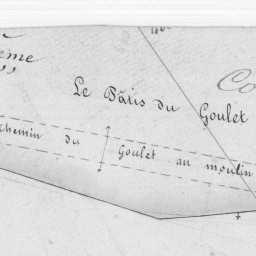 Le Pâtis du Goulet
chemin du Goulet au moulin